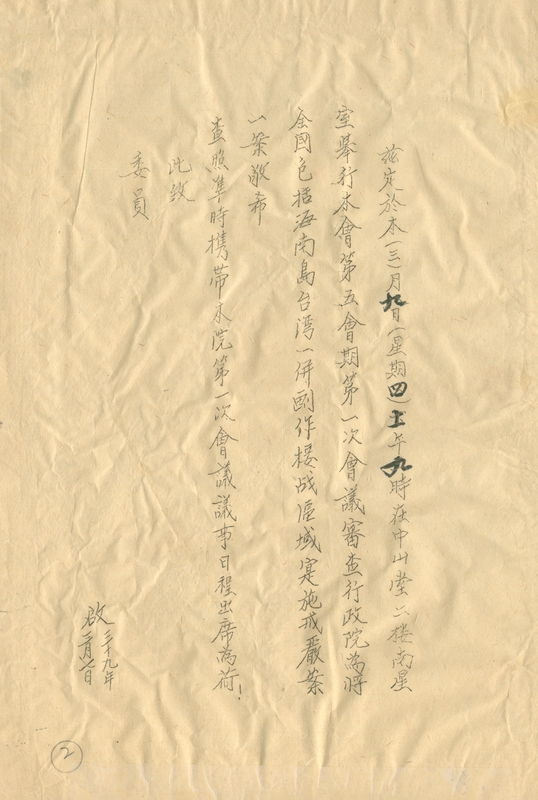 茲定於本(三)月九日(星期四)上午九時在中山堂二樓南星
室舉行本會第五會期第一次會議審查行政院為將
全國包括海南島台湾一併劃作接战區域寔施戒嚴案
一案敬希
查照準時携帶本院第一次會議議事日程出席為荷!
此致
委員
啟
三十九年
三月七日
2